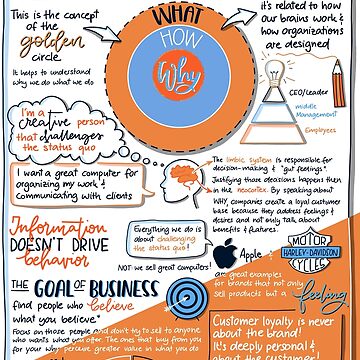 This is the concept
of the
golden
circle.
It helps to understand
why we do what we do
WHAT
HOW
Why
it's related to how
our brains work &
how organizations
are designed
CEO/leader
middle
Management
Employees
I'm a
creative person
that challenges
the status quo
I want a great computer for
organizing my work &
communicating with clients
The limbic system is responsible for
decision-making & "gut feelings".
Justifying those decisions happens then
in the neocortex. By speaking about
WHY, companies create a loyal customer
base because they address feelings &
desires and not only talk about
benefits & features.
Information
DOESN'T DRIVE
behavior
Everything we do is
about challenging
the status quo!
NOT we sell great computers!
Apple
&
MOTOR
HARLEY-DAVIDSON
CYCLES
are great examples
for brands that not only
sell products but a feeling
THE GOAL OF BUSINESS
find people who believe
what you believe.
Focus on those people and don't try to sell to anyone
who wants what you offer. The ones that buy from you
for your why perceive greater value in what you do
Customer loyalty is
never about the brand!
It's deeply personal &
about the customer